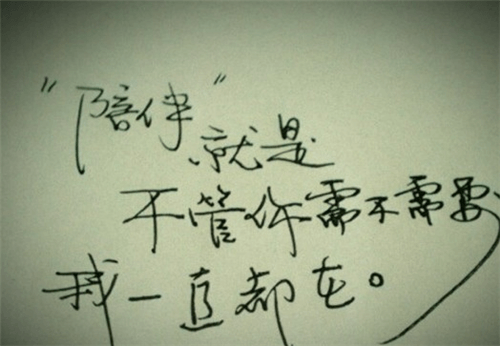 “陪伴”
就是
不管你需不需要
我一直都在。